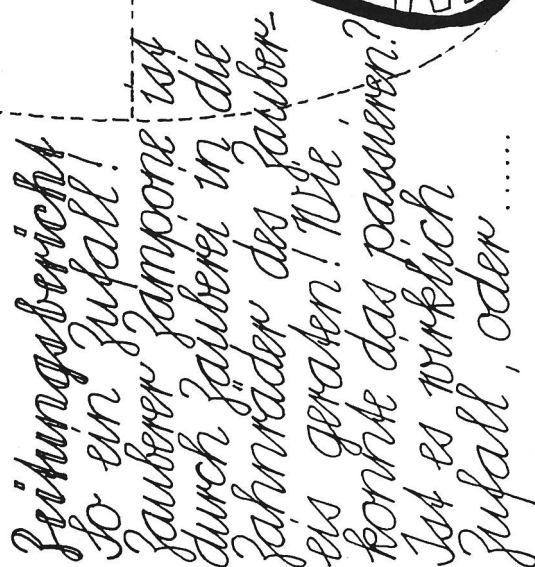 Zeitungsbericht
So ein Zufall!
Zauberer Zampone ist
durch Zauberei in die
Zahnräder des Zauber-
eis geraten! Wie
konnte das passieren?
Ist es wirklich
Zufall, oder ......